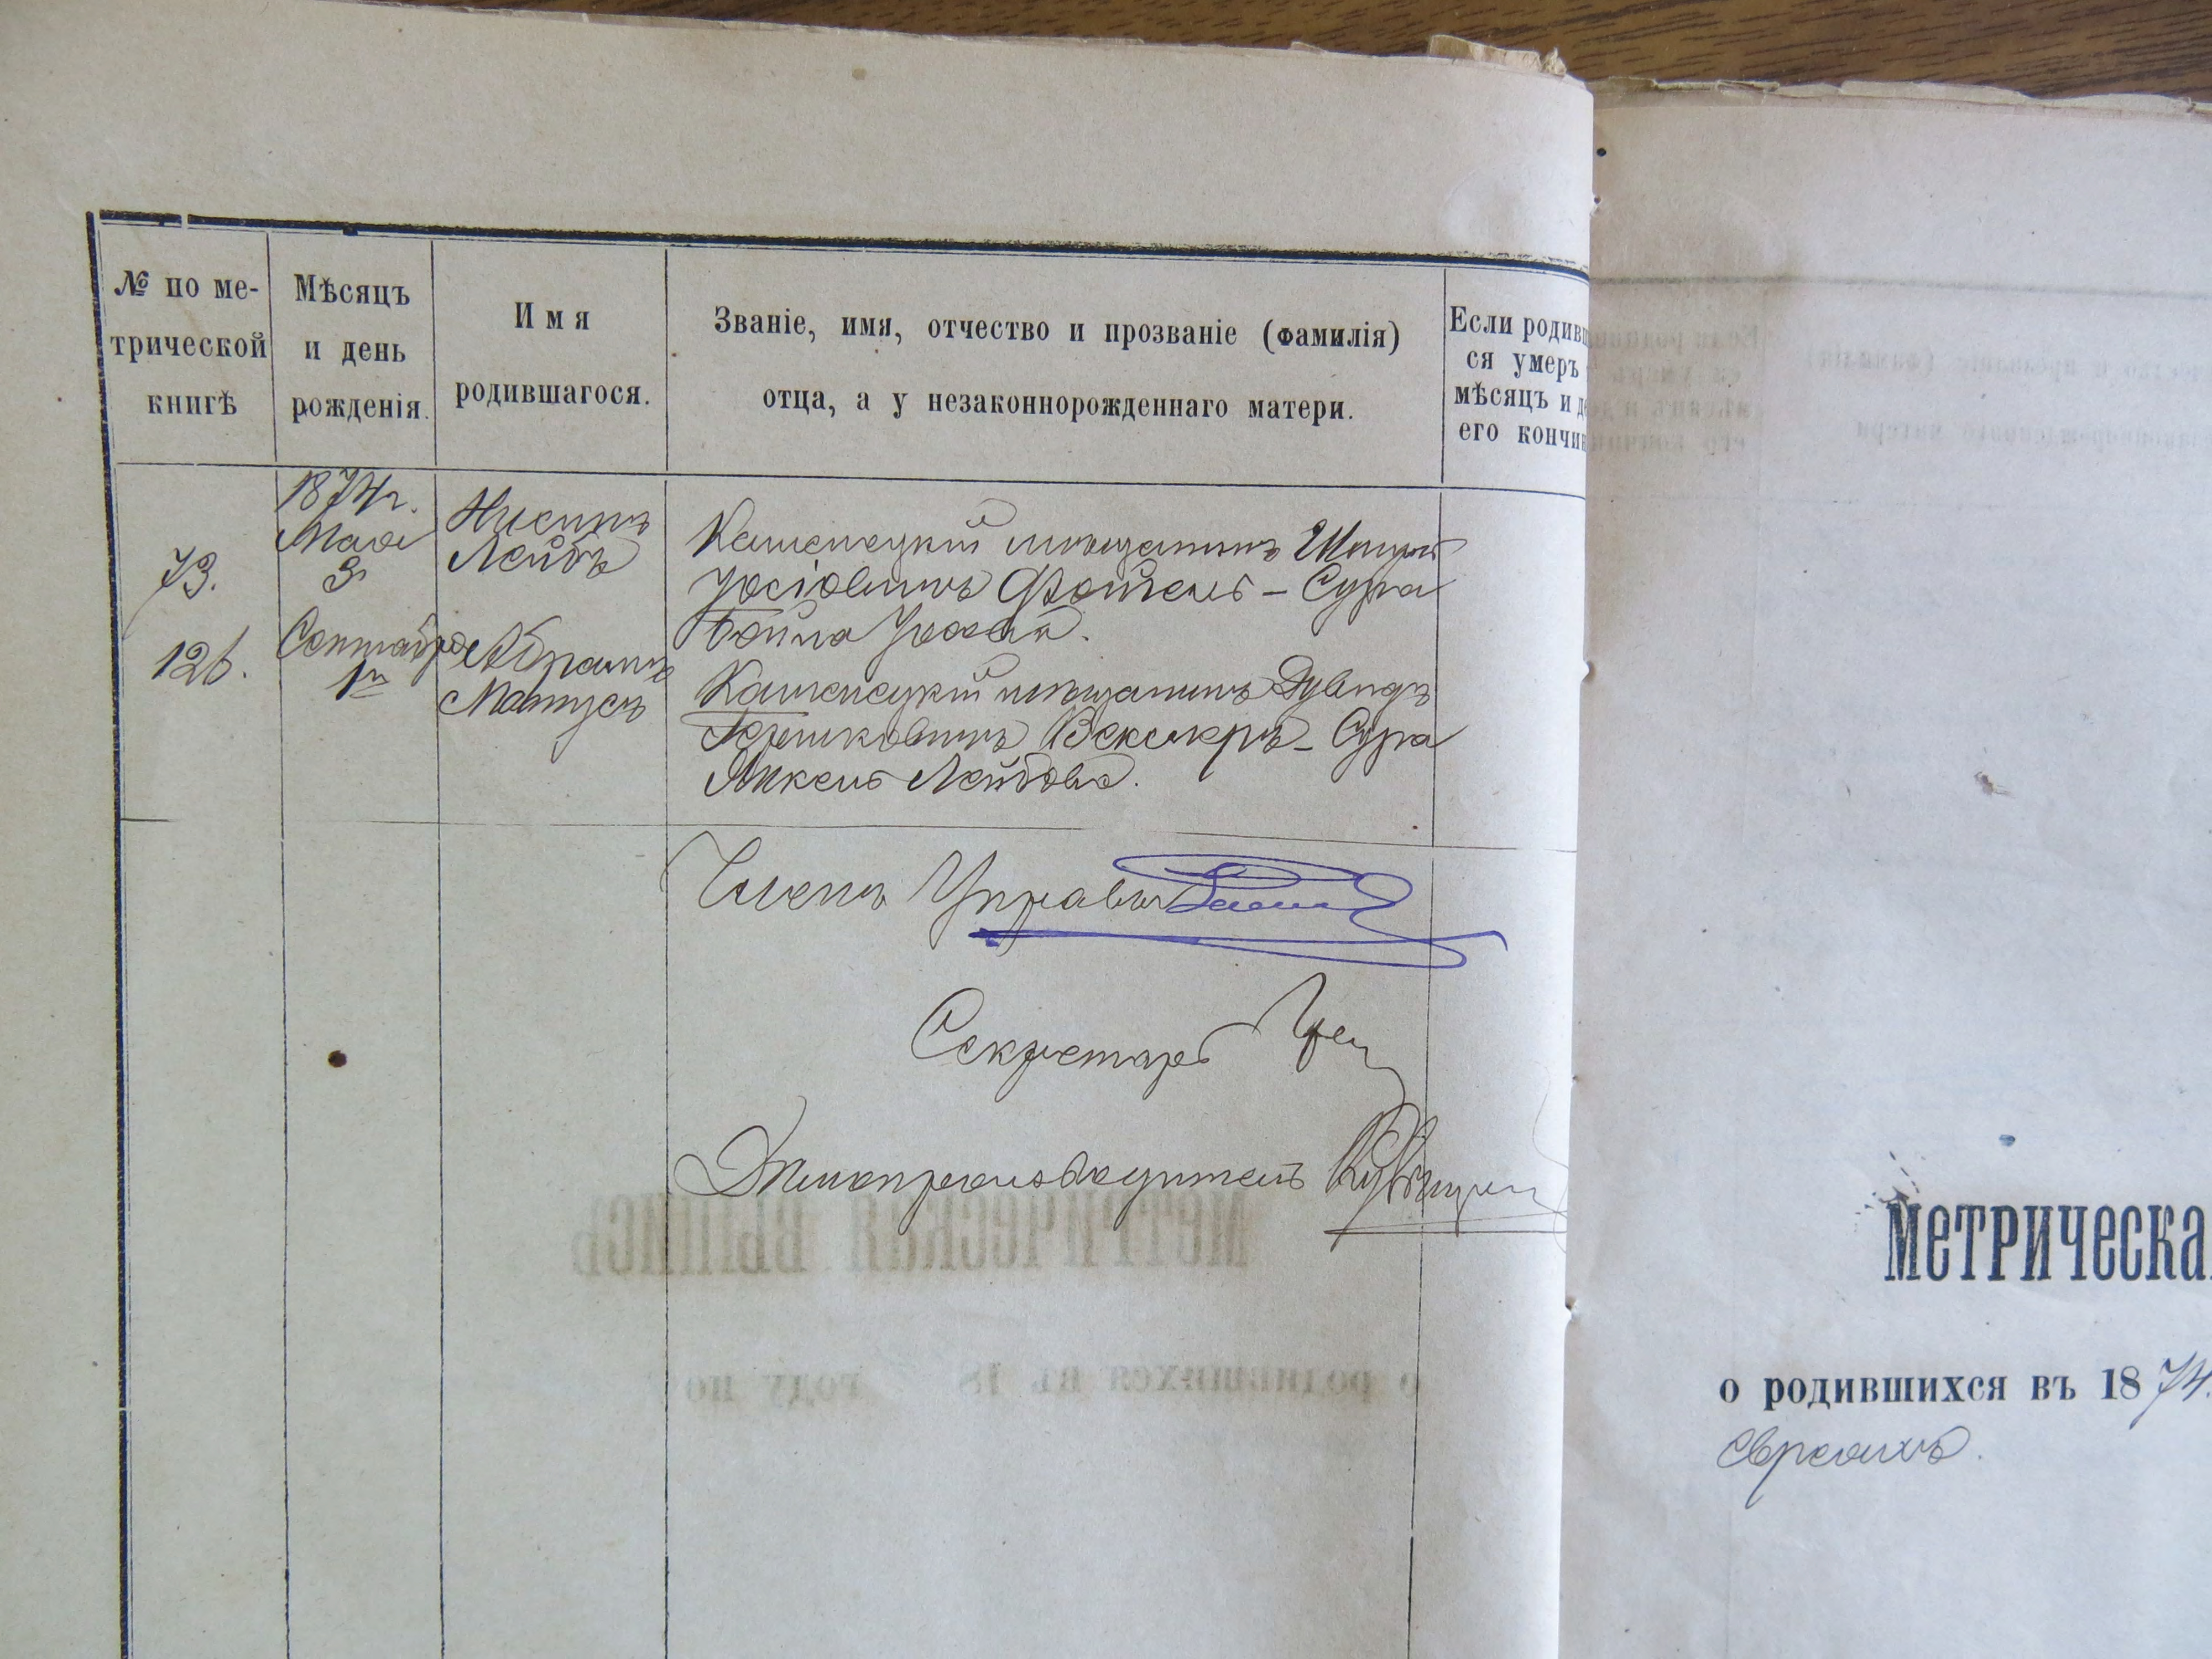 № по ме-
трической
книгѣ
Мѣсяцъ
и день
рожденія.
Имя
родившагося.
Званіе, имя, отчество и прозваніе (фамилія)
отца, а у незаконнорожденнаго матери.
Если родивш
ся умеръ
мѣсяцъ и де
его кончин
73.
1874 г.
Мая
3
Нисинъ
Лейбъ
Каменецкій мѣщанинъ
Іосіовичъ Фдтель - Сура
Бейла
126.
Сентября
1го
Абрамъ
Мотусъ
Каменецкій мѣщанинъ Дувидъ
Гершковичъ Векслеръ - Сура
Лейбова.
Членъ Управы
Секретарь
Дѣлопроизводитель
МЕТРИЧЕСКАЯ ВЫПИСЬ
о родившихся въ 18 году по
МЕТРИЧЕСКА
о родившихся въ 1874.
евреихъ.